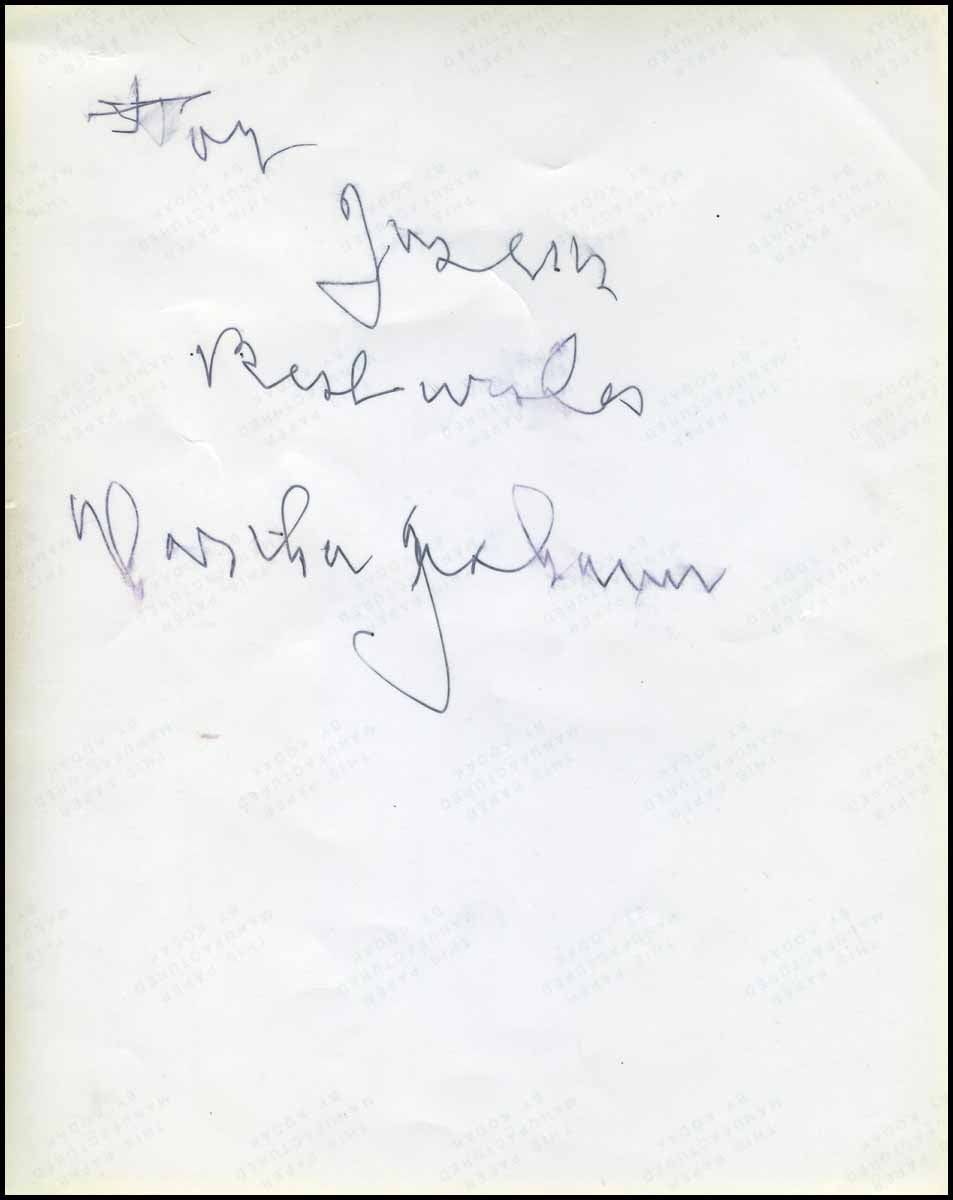 For
Joseph
Best wishes
Martha Graham
THIS PAPER
MANUFACTURED
BY KODAK